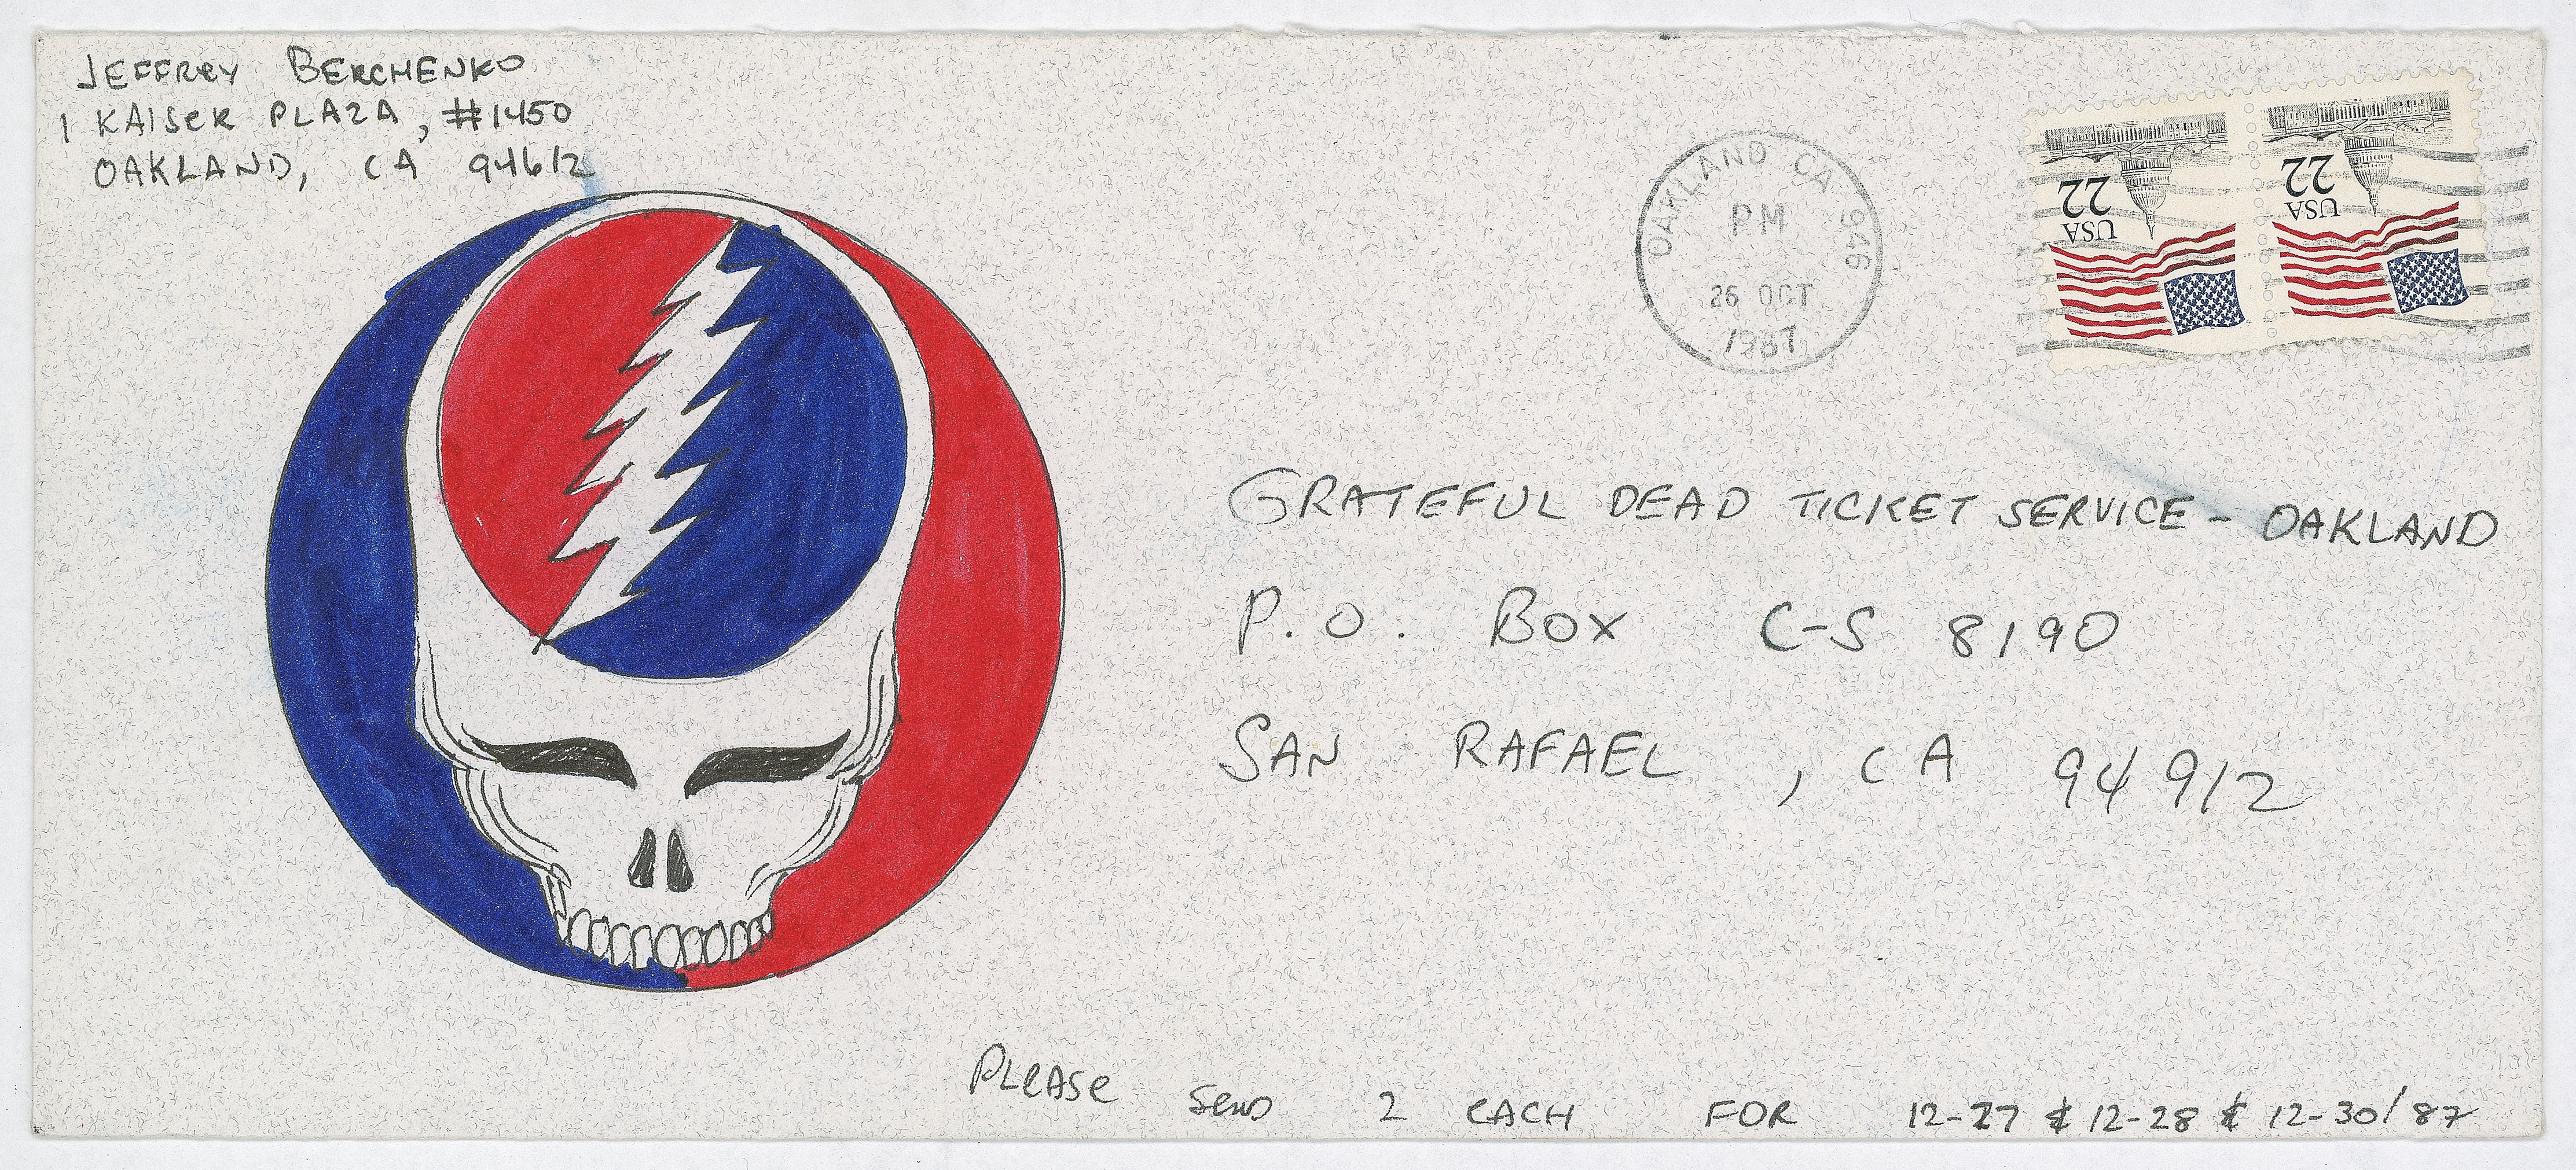 JEFFREY BERCHENKO
1 KAISER PLAZA, #1450
OAKLAND, CA 94612
OAKLAND CA 946
PM
26 OCT
1987
22
USA
22
USA
GRATEFUL DEAD TICKET SERVICE - OAKLAND
P.O. BOX C-S 8190
SAN RAFAEL, CA 94912
PLEASE SEND 2 EACH FOR 12-27 & 12-28 & 12-30/87